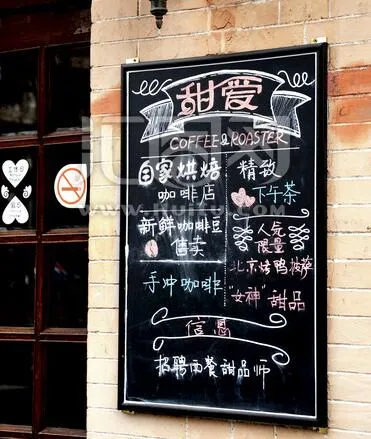 甜爱
COFFEE & ROASTER
自家烘焙
咖啡店
新鲜咖啡豆
售卖
手冲咖啡
精致
下午茶
人气
限量
北京烤鸭披萨
"女神"甜品
信息
招聘西餐甜品师